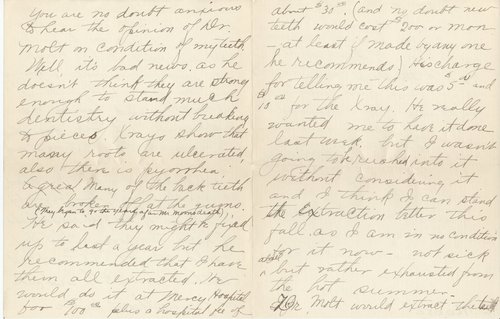 You are no doubt anxious
to hear the opinion of Dr.
Molt on condition of my teeth.
Well, it's bad news, as he
doesn't think they are strong
enough to stand much
dentistry without breaking
to pieces. Xrays show that
many roots are ulcerated,
also there is pyorrhea.
A great many of the back teeth
are broken off at the gums.
(They began to go this way after Mamma's death)
He said they might be fixed
up to last a year but he
recommended that I have
them all extracted. He
would do it at Mercy Hospital
for $100.00 plus a hospital fee of
about $35.00. (and no doubt new
teeth would cost $200 or more
- at least if made by anyone
he recommends) His charge
for telling me this was $5.00 and
$10.00 for the Xray. He really
wanted me to have it done
last week, but I wasn't
going to be rushed into it
without considering it
and I think I can stand
the extraction later this
fall, as I am in no condition
for it now - not sick
but rather exhausted from
the hot summer.
Dr Molt would extract the teeth